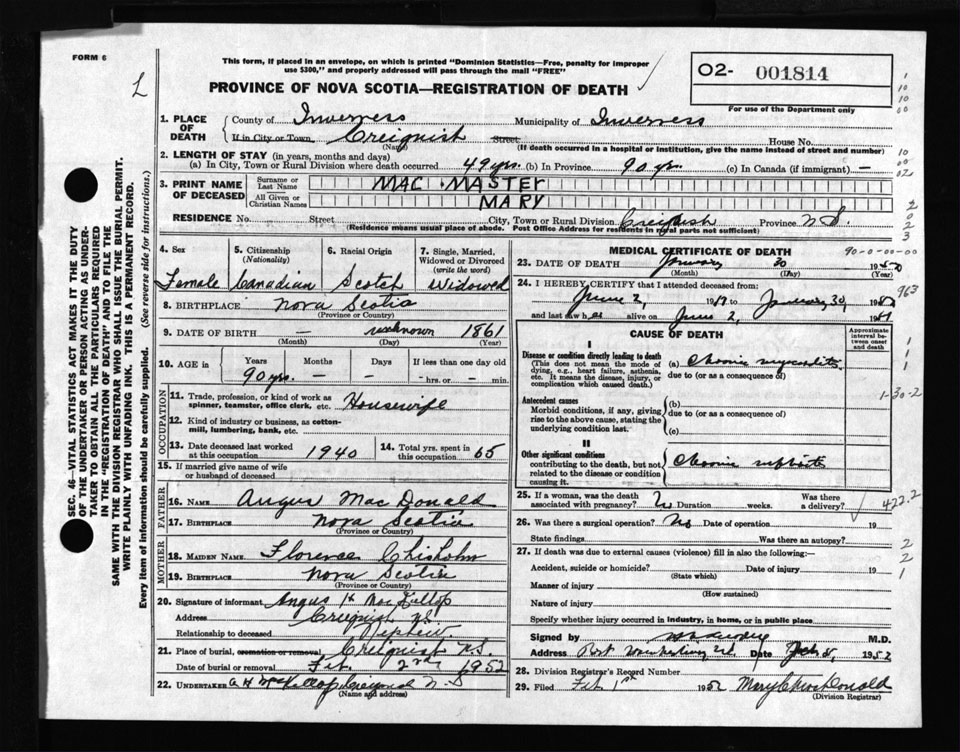 FORM 6
This form, if placed in an envelope, on which is printed "Dominion Statistics—Free, penalty for improper
use $300," and properly addressed will pass through the mail "FREE"
O2- 001814
For use of the Department only
PROVINCE OF NOVA SCOTIA—REGISTRATION OF DEATH
1. PLACE OF DEATH County of Inverness Municipality of Inverness
If in City or Town Creignish Street House No.
(Name) (If death occurred in a hospital or institution, give the name instead of street and number)
2. LENGTH OF STAY (in years, months and days)
(a) In City, Town or Rural Division where death occurred 49 yrs. (b) In Province 90 yr. (c) In Canada (if immigrant) —
3. PRINT NAME OF DECEASED Surname or Last Name MAC MASTER
All Given or Christian Names MARY
RESIDENCE No. Street City, Town or Rural Division Creignish Province N S.
(Residence means usual place of abode. Post Office Address for residents in rural parts not sufficient)
4. Sex Female
5. Citizenship (Nationality) Canadian
6. Racial Origin Scotch
7. Single, Married, Widowed or Divorced (write the word) Widowed
8. BIRTHPLACE Nova Scotia
(Province or Country)
9. DATE OF BIRTH — unknown 1861
(Month) (Day) (Year)
10. AGE in Years Months Days If less than one day old
90 yrs. — — - hrs. or - min.
OCCUPATION
11. Trade, profession, or kind of work as spinner, teamster, office clerk, etc. Housewife
12. Kind of industry or business, as cotton-mill, lumbering, bank, etc.
13. Date deceased last worked at this occupation 1940
14. Total yrs. spent in this occupation 65
15. If married give name of wife or husband of deceased
FATHER
16. NAME Angus Mac Donald
17. BIRTHPLACE Nova Scotia
(Province or Country)
MOTHER
18. MAIDEN NAME Florence Chisholm
19. BIRTHPLACE Nova Scotia
(Province or Country)
20. Signature of informant Angus H Mac Killop
Address Creignish N.S.
Relationship to deceased Nephew.
21. Place of burial, cremation or removal Creignish N.S.
Date of burial or removal Feb. 2nd 1952
22. UNDERTAKER A H McKillop Creignish N S
(Name and address)
MEDICAL CERTIFICATE OF DEATH
90-0-00-00
23. DATE OF DEATH January 30
(Month) (Day) (Year)
24. I HEREBY CERTIFY that I attended deceased from:
June 2, to January 30,
and last saw h alive on June 2,
963
CAUSE OF DEATH
Approximate interval between onset and death
I
Disease or condition directly leading to death
(This does not mean the mode of dying, e.g., heart failure, asthenia, etc. It means the disease, injury, or complication which caused death.)
(a) Chronic myocarditis
due to (or as a consequence of)
Antecedent causes
Morbid conditions, if any, giving rise to the above cause, stating the underlying condition last.
(b)
due to (or as a consequence of)
(c)
1-30-2
II
Other significant conditions
contributing to the death, but not related to the disease or condition causing it.
Chronic nephritis
25. If a woman, was the death associated with pregnancy? No Duration weeks. Was there a delivery?
422.2
26. Was there a surgical operation? No Date of operation 19
State findings Was there an autopsy?
27. If death was due to external causes (violence) fill in also the following:—
Accident, suicide or homicide? Date of injury 19
(State which)
Manner of injury
(How sustained)
Nature of injury
Specify whether injury occurred in industry, in home, or in public place
Signed by M.D.
Address Port Date 1952
28. Division Registrar's Record Number
29. Filed Feb 1st 1952 Mary C MacDonald
(Division Registrar)
SEC. 46—VITAL STATISTICS ACT MAKES IT THE DUTY
OF THE UNDERTAKER OR PERSON ACTING AS UNDER-
TAKER TO OBTAIN ALL THE PARTICULARS REQUIRED
IN THE "REGISTRATION OF DEATH" AND TO FILE THE
SAME WITH THE DIVISION REGISTRAR WHO SHALL ISSUE THE BURIAL PERMIT.
WRITE PLAINLY WITH UNFADING INK. THIS IS A PERMANENT RECORD.
Every item of information should be carefully supplied. (See reverse side for instructions.)